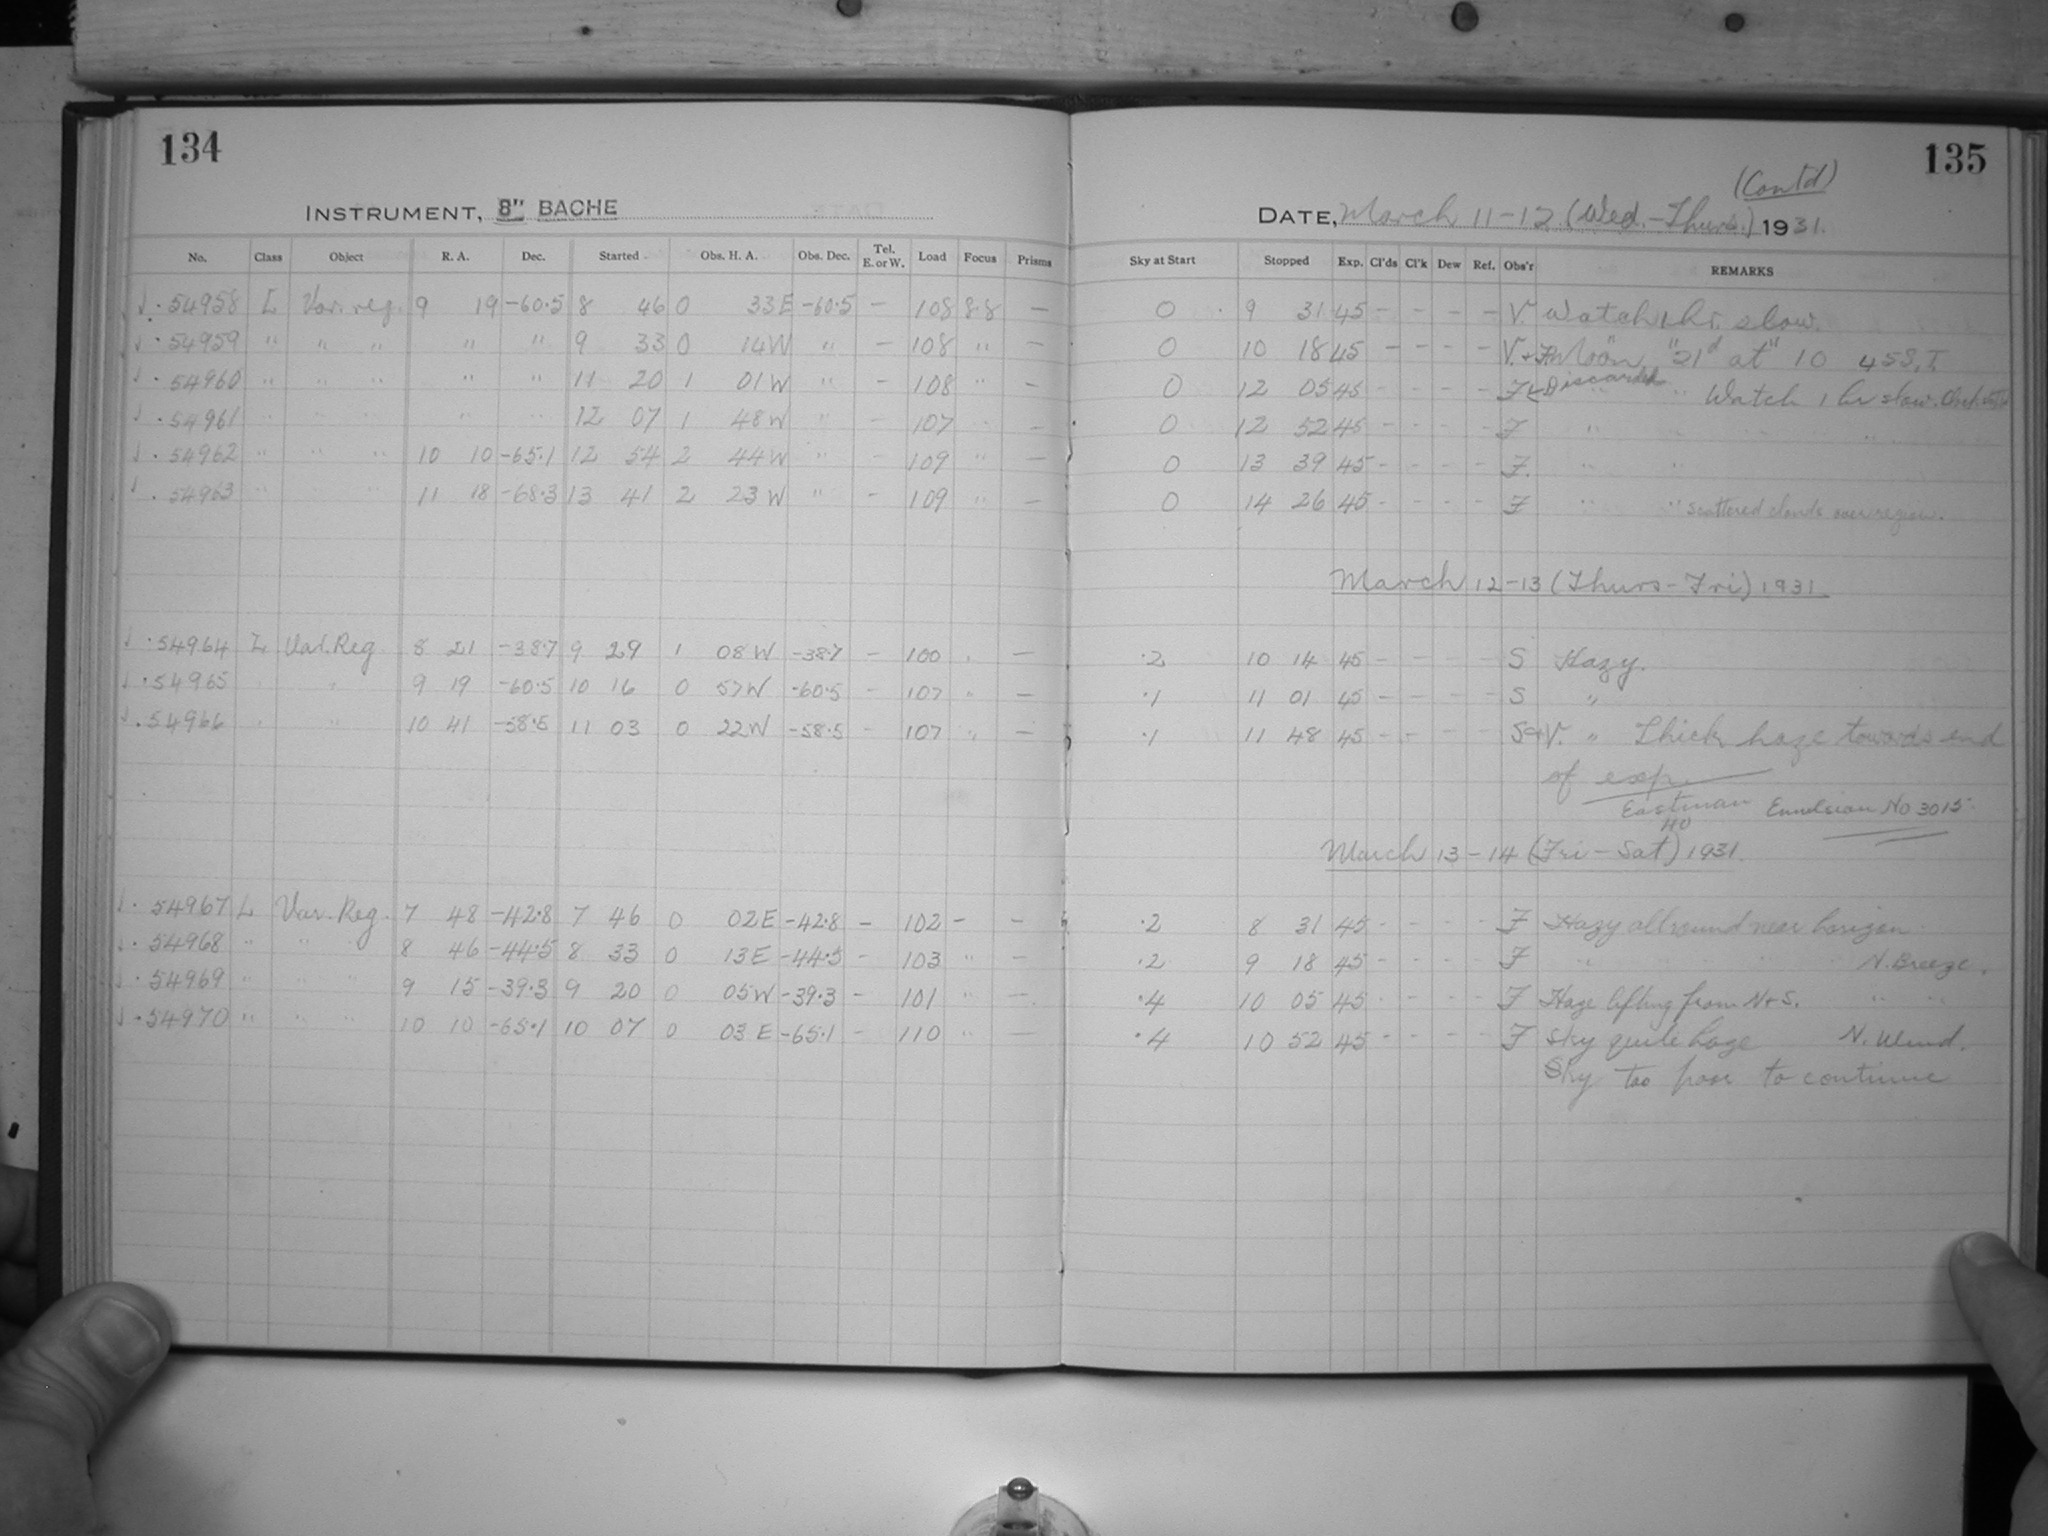 134
INSTRUMENT, 8" BACHE
No. Class Object R. A. Dec. Started Obs. H. A. Obs. Dec. Tel. E. or W. Load Focus Prisms
54958 L Var. reg. 9 19 -60.5 8 46 0 33E -60.5 - 108 8.8 -
54959 " " " " " 9 33 0 14W " - 108 " -
54960 " " " " " 11 20 1 01W " - 108 " -
54961 " " " " " 12 07 1 48W " - 107 " -
54962 " " " 10 10 -65.1 12 54 2 44W " - 109 " -
54963 " " " 11 18 -68.3 13 41 2 23W " - 109 " -
54964 L Var. Reg 8 21 -38.7 9 29 1 08W -38.7 - 100 " -
54965 " " 9 19 -60.5 10 16 0 57W -60.5 - 107 " -
54966 " " 10 41 -58.5 11 03 0 22W -58.5 - 107 " -
54967 L Var. Reg. 7 48 -42.8 7 46 0 02E -42.8 - 102 - -
54968 " " " 8 46 -44.5 8 33 0 13E -44.5 - 103 " -
54969 " " " 9 15 -39.3 9 20 0 05W -39.3 - 101 " -
54970 " " " 10 10 -65.1 10 07 0 03E -65.1 - 110 " -
135
(Contd)
DATE, March 11-12 (Wed.-Thurs.) 1931.
Sky at Start Stopped Exp. Cl'ds Cl'k Dew Ref. Obs'r REMARKS
0 9 31 45 - - - - V. Watch 1 hr. slow.
0 10 18 45 - - - - V.+F. Moon " 21d at " 10 45 S.T.
0 12 05 45 - - - - F Discarded " Watch 1 hr slow.
0 12 52 45 - - - - F " "
0 13 39 45 - - - - F. " "
0 14 26 45 - - - - F " " scattered clouds over region.
March 12-13 (Thurs-Fri) 1931
.2 10 14 45 - - - - S Hazy.
.1 11 01 45 - - - - S "
.1 11 48 45 - - - - S+V. " Thick haze towards end
of exp.
Eastman 40 Emulsion No 3015
March 13-14 (Fri-Sat) 1931.
.2 8 31 45 - - - - F Hazy all round near horizon
.2 9 18 45 - - - - F " " " " N. Breeze.
.4 10 05 45 - - - - F Haze lifting from N+S. " "
.4 10 52 45 - - - - F Sky quite haze N. Wind.
Sky too poor to continue